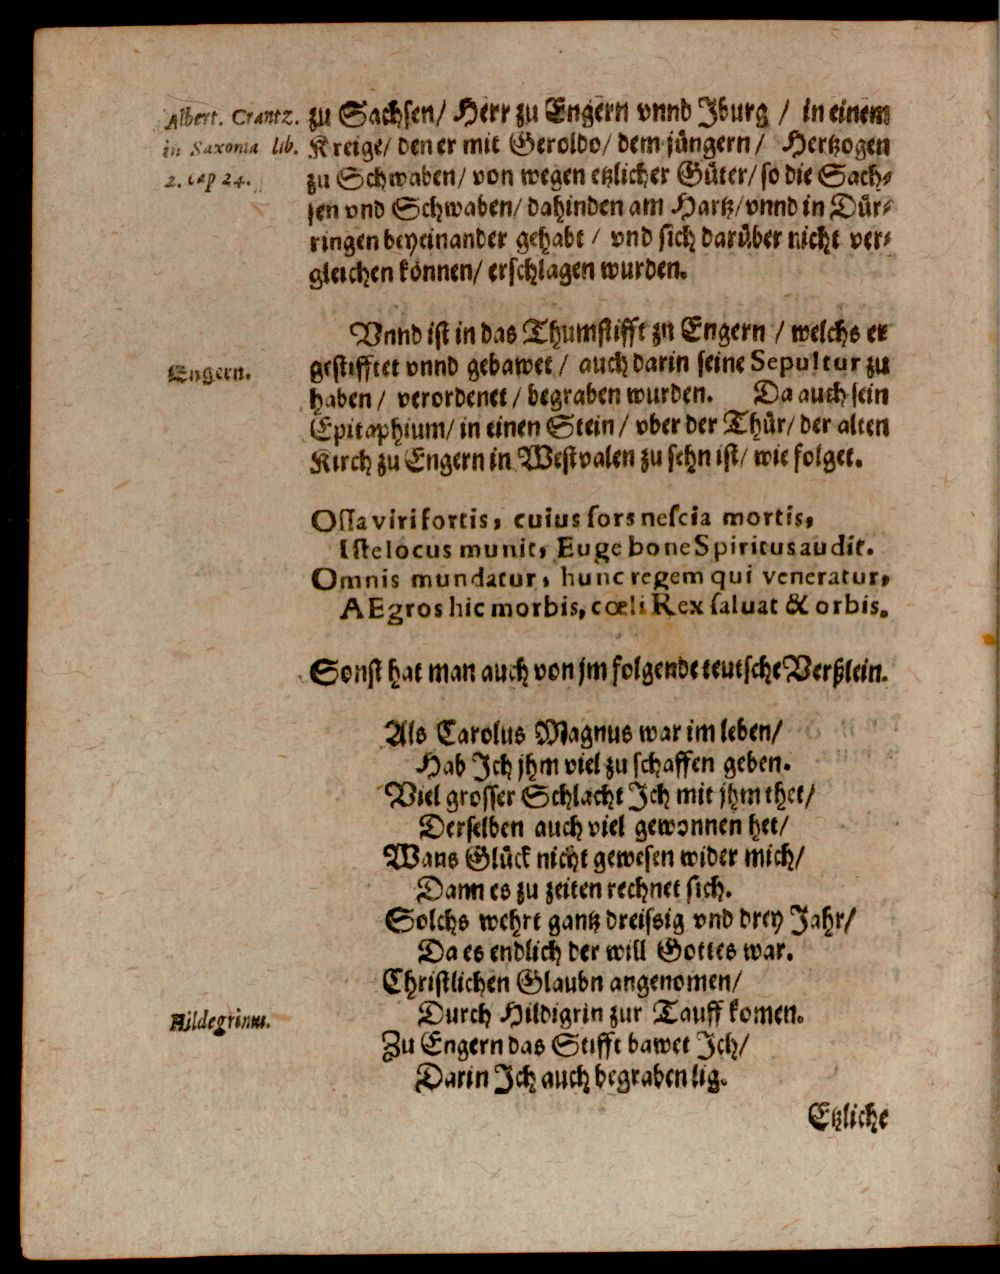 Albert. Crantz.
in Saxonia lib.
2. cap 24.
zu Sachsen/ Herr zu Engern vnnd Jburg / in einem
Kreige/ den er mit Geroldo/ dem jüngern/ Hertzogen
zu Schwaben/ von wegen etzlicher Güter/ so die Sach⸗
sen vnd Schwaben/ dahinden am Hartz/ vnnd in Dür⸗
ringen beyeinander gehabt / vnd sich darüber nicht ver⸗
gleichen können/ erschlagen wurden.
Vnnd ist in das Thumstifft zu Engern / welchs er
Engern.
gestifftet vnnd gebawet / auch darin seine Sepultur zu
haben / verordenet / begraben wurden. Da auch sein
Epitaphium/ in einen Stein / vber der Thür/ der alten
Kirch zu Engern in Westvalen zu sehn ist/ wie folget.
Ossa viri fortis, cuius sors nescia mortis,
Iste locus munit, Euge bone Spiritus audit.
Omnis mundatur, hunc regem qui veneratur,
AEgros hic morbis, cœli Rex saluat & orbis.
Sonst hat man auch von jm folgende teutsche Verßlein.
Als Carolus Magnus war im leben/
Hab Ich jhm viel zu schaffen geben.
Viel grosser Schlacht Ich mit jhm thet/
Derselben auch viel gewonnen het/
Wans Glück nicht gewesen wider mich/
Dann es zu zeiten rechnet sich.
Solchs wehrt gantz dreissig vnd drey Jahr/
Da es endlich der will Gottes war.
Christlichen Glaubn angenomen/
Hildegrinus.
Durch Hildigrin zur Tauff komen.
Zu Engern das Stifft bawet Ich/
Darin Ich auch begraben lig.
Etzliche